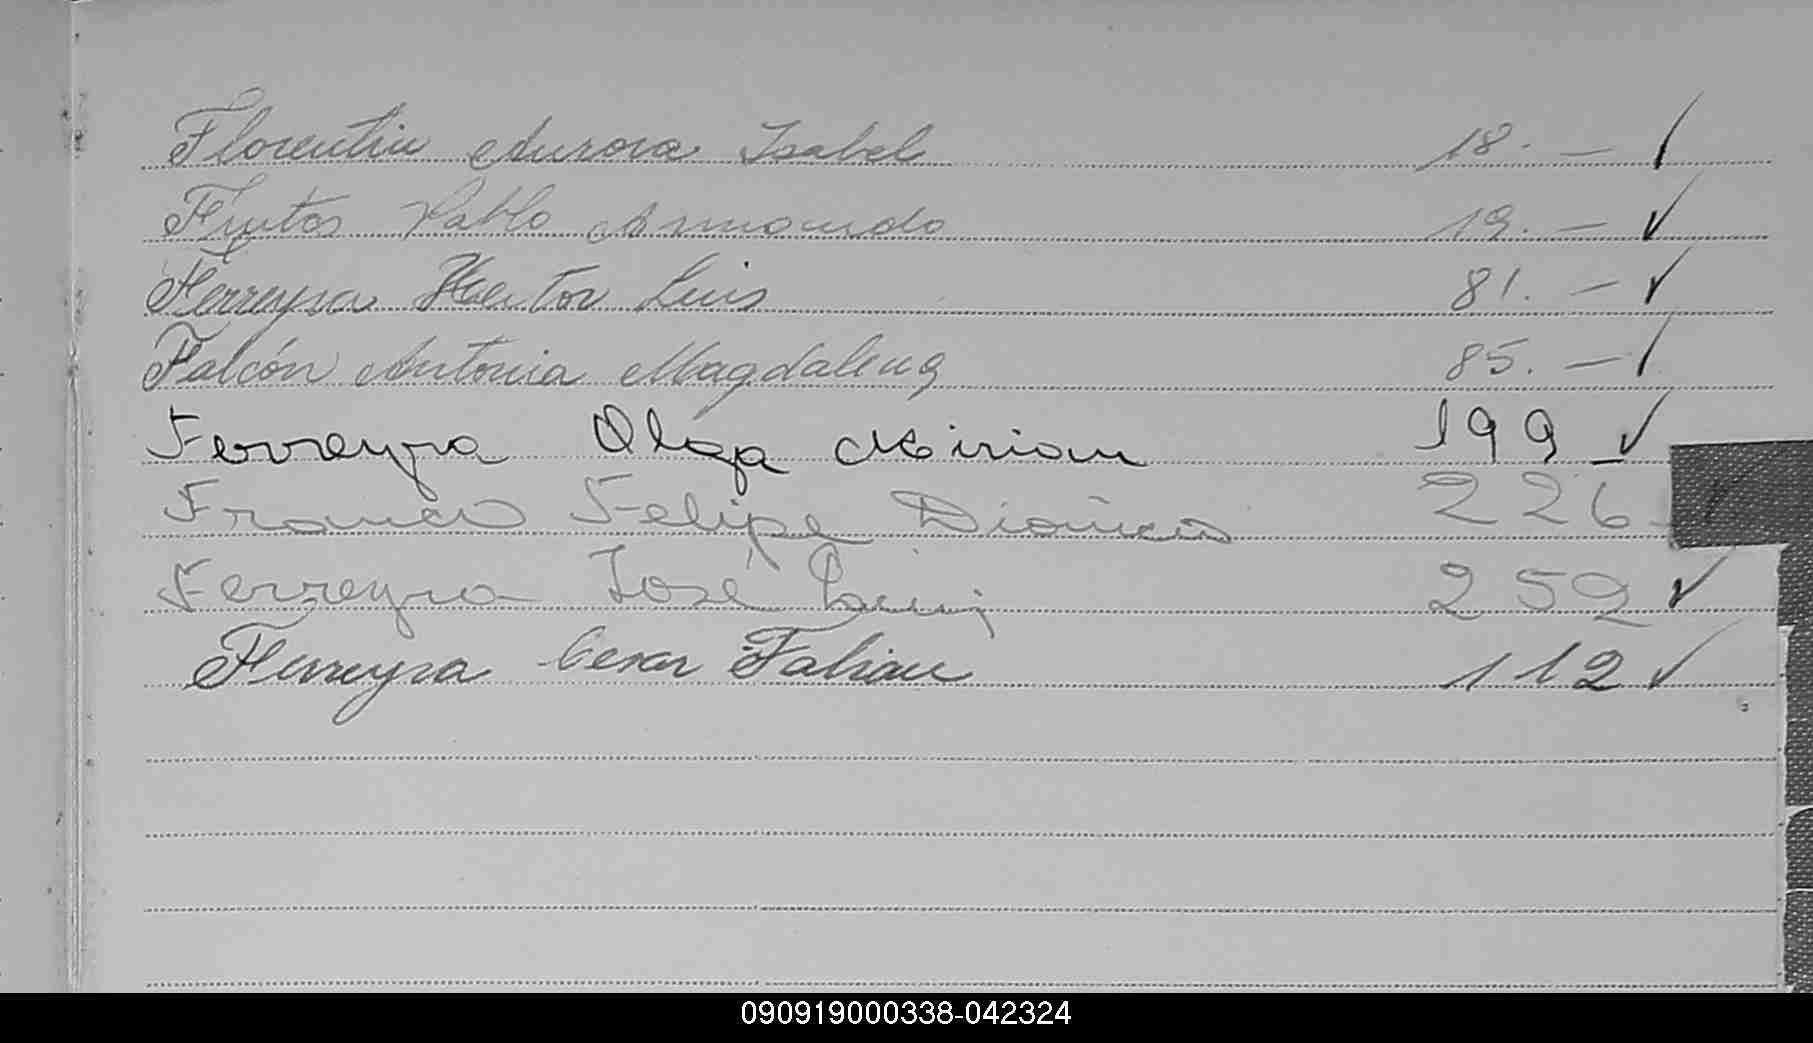 Florentin Aurora Isabel 18. — ✓
Frutos Pablo Armando 19. — ✓
Ferreyra Hector Luis 81. — ✓
Falcón Antonia Magdalena 85. — ✓
Ferreyra Olga Mirian 199 — ✓
Franco Felipe Dionicio 226 — ✓
Ferreyra José Luis 252 ✓
Ferreyra Cesar Fabian 112 ✓
090919000338-042324